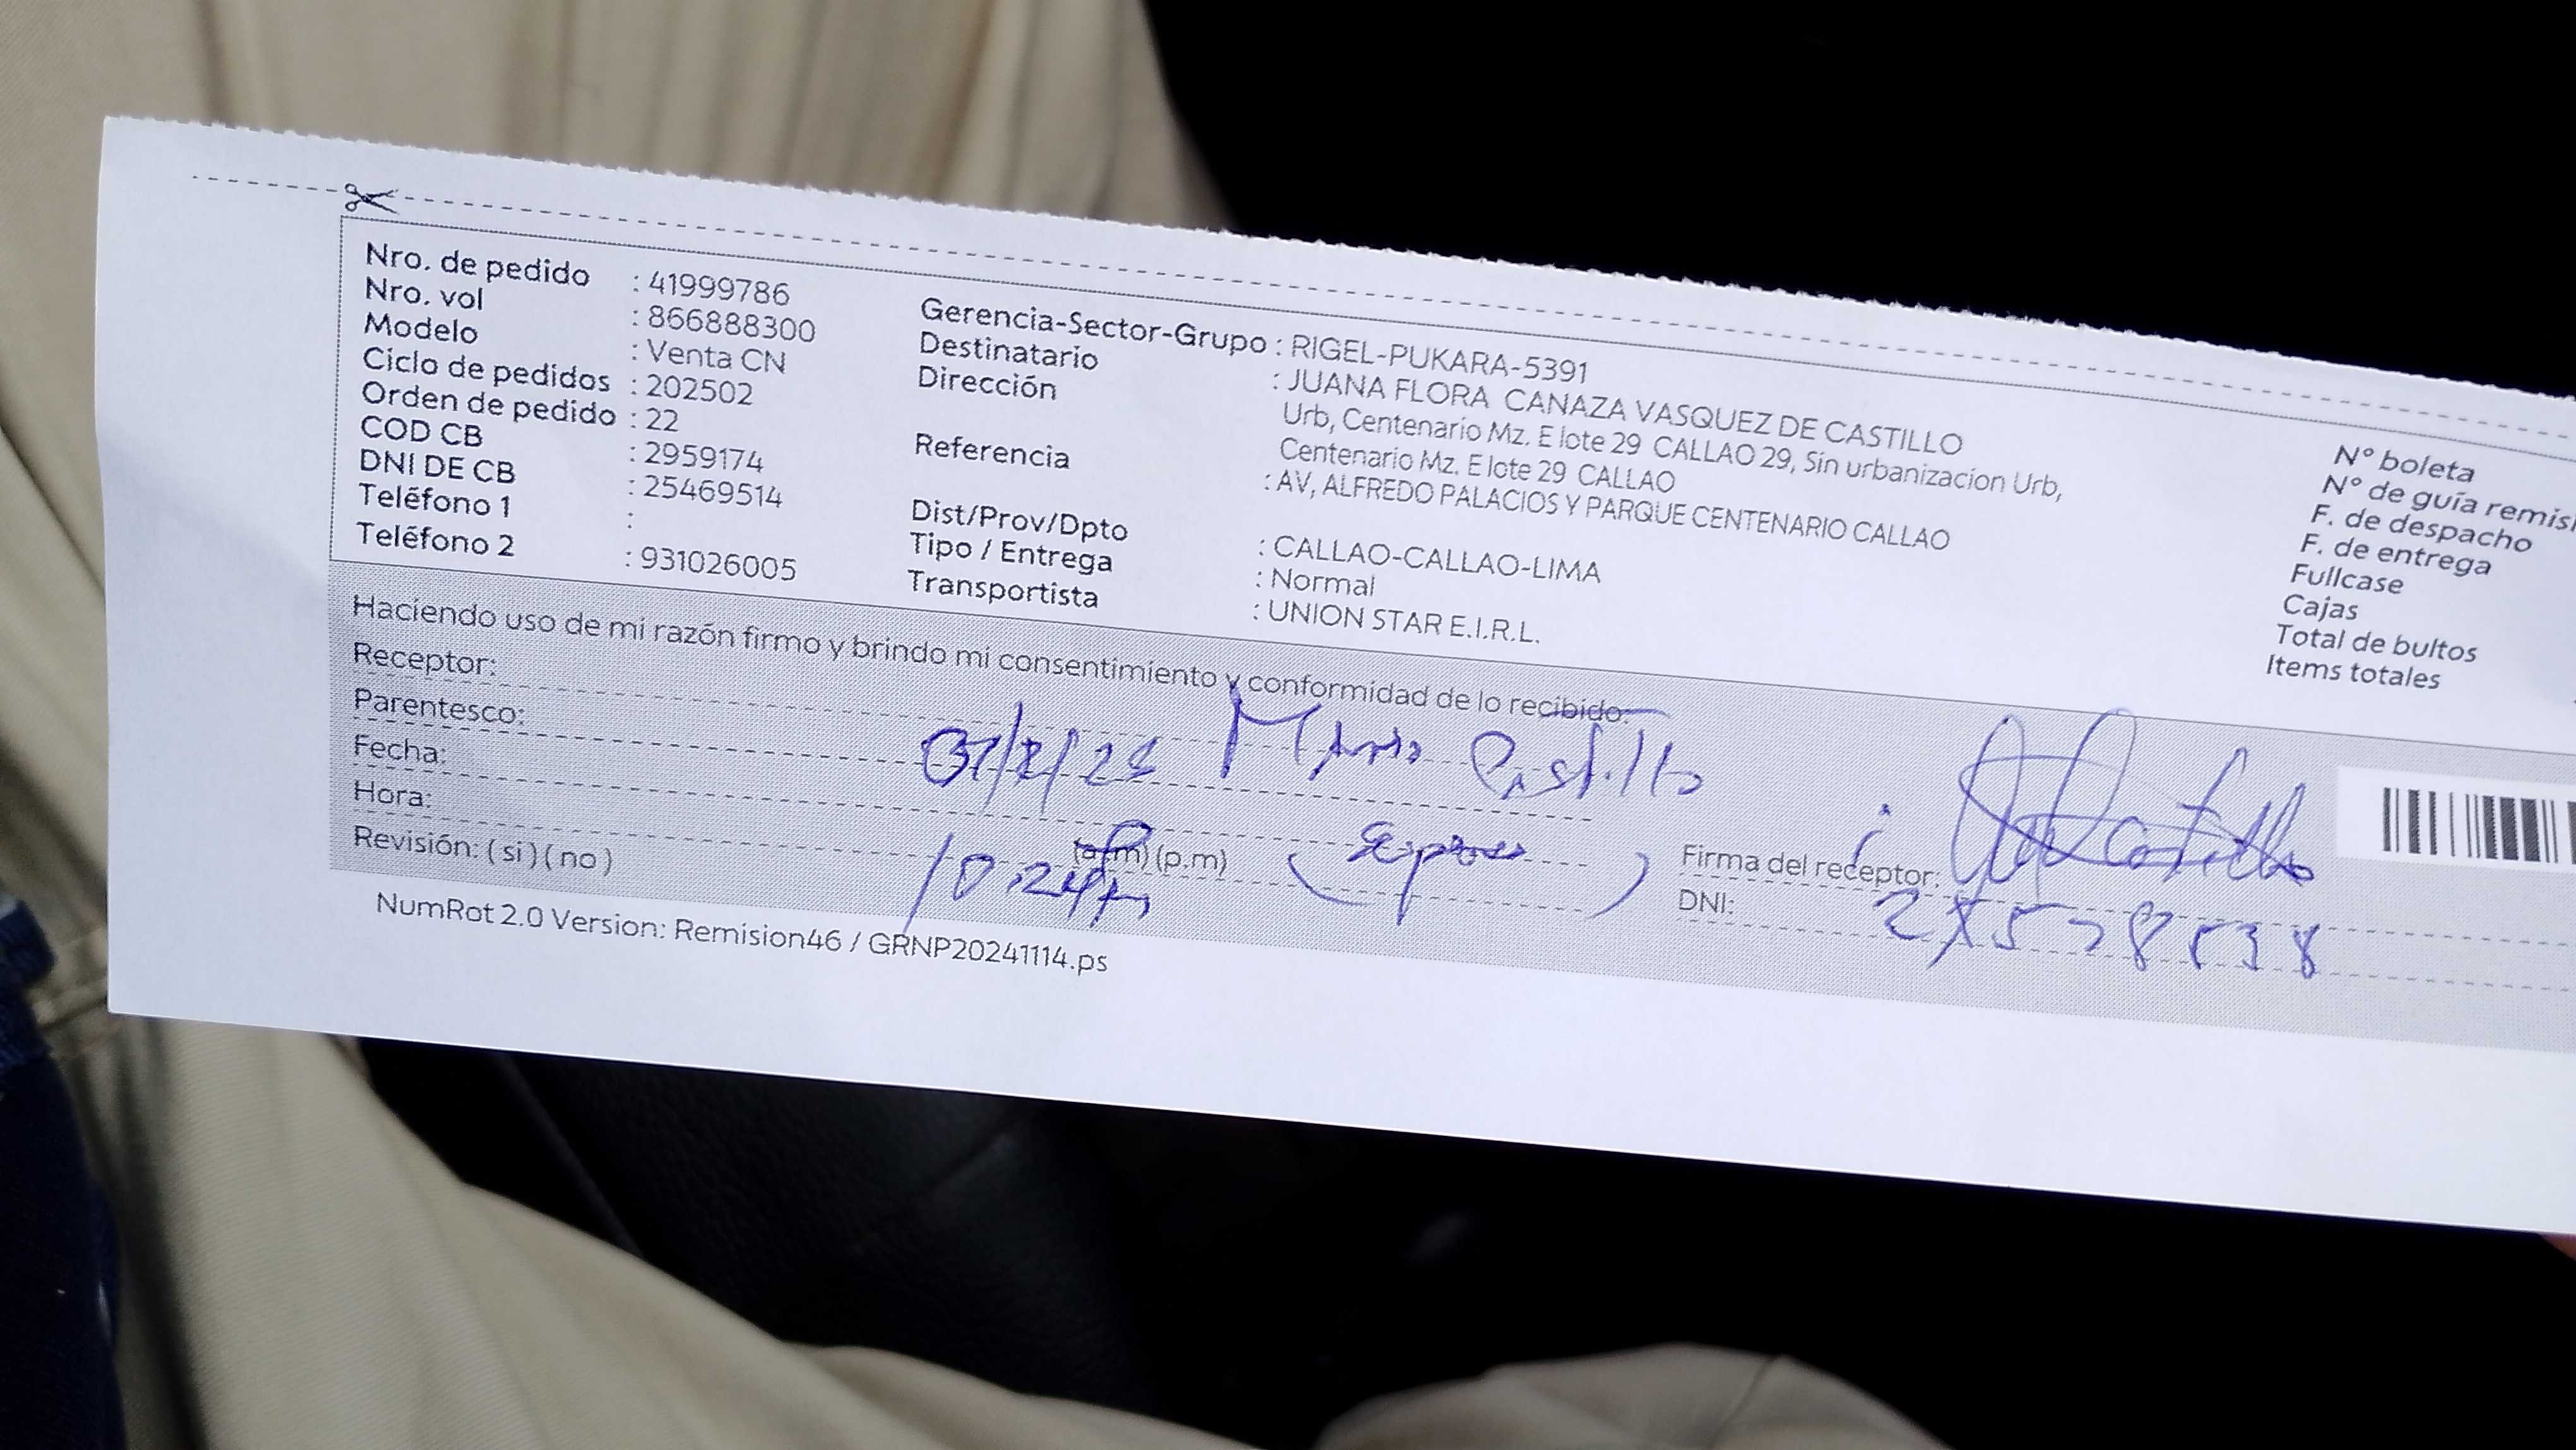 Nro. de pedido : 41999786
Nro. vol : 866888300
Modelo : Venta CN
Ciclo de pedidos : 202502
Orden de pedido : 22
COD CB : 2959174
DNI DE CB : 25469514
Teléfono 1 :
Teléfono 2 : 931026005
Gerencia-Sector-Grupo : RIGEL-PUKARA-5391
Destinatario : JUANA FLORA CANAZA VASQUEZ DE CASTILLO
Dirección Urb, Centenario Mz. E lote 29 CALLAO 29, Sin urbanizacion Urb,
Centenario Mz. E lote 29 CALLAO
Referencia : AV, ALFREDO PALACIOS Y PARQUE CENTENARIO CALLAO
Dist/Prov/Dpto : CALLAO-CALLAO-LIMA
Tipo / Entrega : Normal
Transportista : UNION STAR E.I.R.L.
N° boleta
N° de guía remisi
F. de despacho
F. de entrega
Fullcase
Cajas
Total de bultos
Items totales
Haciendo uso de mi razón firmo y brindo mi consentimiento y conformidad de lo recibido.
Receptor:
Parentesco: Castillo
Fecha:
Hora: (a.m) (p.m)
Revisión: ( si ) ( no )
Firma del receptor:
DNI:
NumRot 2.0 Version: Remision46 / GRNP20241114.ps